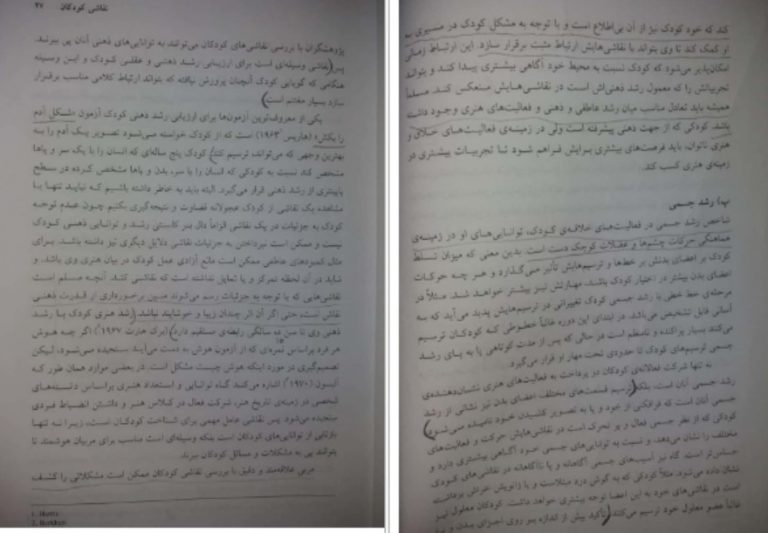 نقاشی کودکان ۴۷
پژوهشگران با بررسی نقاشی‌های کودکان می‌توانند به توانایی‌های ذهنی آنان پی ببرند.
پس نقاشی وسیله‌ای است برای ارزیابی رشد ذهنی و عقلی کودک و این وسیله
هنگامی که گویایی کودک آنچنان پرورش نیافته که بتواند ارتباط کلامی مناسب برقرار
سازد بسیار مغتنم است.
یکی از معروف‌ترین آزمون‌ها برای ارزیابی رشد ذهنی کودک آزمون «شکل آدم
را بکش» (هاریس ۱۹۶۳) است که از کودک خواسته می‌شود تصویر یک آدم را به
بهترین وجهی که می‌تواند، ترسیم کند. کودک پنج ساله‌ای که انسان را با یک سر و پاها
مشخص کند نسبت به کودکی که انسان را با سر، بدن و پاها مشخص کرده در سطح
پایین‌تری از رشد ذهنی قرار می‌گیرد. البته باید به خاطر داشته باشیم که نباید تنها با
مشاهده یک نقاشی از کودک عجولانه قضاوت و نتیجه‌گیری بکنیم چون عدم توجه
کودک به جزئیات در یک نقاشی الزاماً دال بر کاستی رشد و توانایی ذهنی کودک
نیست و ممکن است نپرداختن به جزئیات نقاشی دلایل دیگری نیز داشته باشد. برای
مثال کمبودهای عاطفی ممکن است مانع آزادی عمل کودک در بیان هنری وی باشد. و
شاید در آن لحظه تمرکز و یا تمایل نداشته است که نقاشی کند. آنچه مسلم است
نقاشی‌هایی که با توجه به جزئیات رسم می‌شوند مبین برخورداری از قدرت ذهنی
نقاش است، حتی اگر آن اثر چندان زیبا و خوشایند نباشد. (رشد هنری کودک با رشد
ذهنی وی تا سن ده سالگی رابطه‌ی مستقیم دارد) (برک هارت ۱۹۶۷) اگر چه هوش
هر فرد براساس نمره‌ای که از آزمون هوش به دست می‌آید سنجیده می‌شود، لیکن
تصمیم‌گیری در مورد اینکه هوش چیست مشکل است. در بعضی موارد همان طور که
آیسون (۱۹۷۰) اشاره می‌کند گاه توانایی و استعداد هنری براساس دانسته‌های
شخصی در زمینه‌ی تاریخ هنر، شرکت فعال در کلاس هنر و داشتن انضباط فردی
سنجیده می‌شود. پس نقاشی عامل مهمی برای شناخت کودکان است، زیرا نه تنها
بازتابی از توانایی‌های کودکان است بلکه وسیله‌ای است مناسب برای مربیان هوشمند تا
بتوانند پی به مشکلات و مسائل کودکان ببرند.
مربی علاقه‌مند و دقیق با بررسی نقاشی کودکان ممکن است مشکلاتی را کشف
1. Harris
2. Burkhart
کند که خود کودک نیز از آن بی‌اطلاع است و با توجه به مشکل کودک در مسیری به
او کمک کند تا وی بتواند با نقاشی‌هایش ارتباط مثبت برقرار سازد. این ارتباط زمانی
امکان‌پذیر می‌شود که کودک نسبت به محیط خود آگاهی بیشتری پیدا کند و بتواند
تجربیاتش را که معمول رشد ذهنی‌اش است در نقاشی‌هایش منعکس کند. مسلماً
همیشه باید تعادل مناسب میان رشد عاطفی و ذهنی و فعالیت‌های هنری وجود داشته
باشد. کودکی که از جهت ذهنی پیشرفته است ولی در زمینه‌ی فعالیت‌های خلاق و
هنری ناتوان، باید فرصت‌های بیشتری برایش فراهم شود تا تجربیات بیشتری در
زمینه‌ی هنری کسب کند.
پ) رشد جسمی
شاخص رشد جسمی در فعالیت‌های خلاقه‌ی کودک، توانایی‌های او در زمینه‌ی
هماهنگی حرکات چشم‌ها و عضلات کوچک دست است. بدین معنی که میزان تسلط
کودک بر اعضای بدنش بر خط‌ها و ترسیم‌هایش تأثیر می‌گذارد و هر چه حرکات
اعضای بدن بیشتر در اختیار کودک باشند، مهارتش نیز بیشتر خواهد شد. مثلاً در
مرحله‌ی خط خطی با رشد جسمی کودک تغییراتی در ترسیم‌هایش پدید می‌آید که به
آسانی قابل تشخیص می‌باشد. در ابتدای این دوره غالباً خطوطی که کودکان ترسیم
می‌کنند بسیار پراکنده و نامنظم است در حالی که پس از مدت کوتاهی پا به پای رشد
جسمی ترسیم‌های کودک تا حدودی تحت مهار او قرار می‌گیرد.
نه تنها شرکت فعالانه‌ی کودکان در پرداخت به فعالیت‌های هنری نشان‌دهنده‌ی
رشد جسمی آنان است، بلکه (ترسیم قسمت‌های مختلف اعضای بدن نیز نشانی از رشد
جسمی آنان است که فرافکنی از خود و یا به تصویر کشیدن خود نامیده می‌شود)
کودکی که از نظر جسمی فعال و پر تحرک است در نقاشی‌هایش حرکت و فعالیت‌های
مختلف را نشان می‌دهد، و نسبت به توانایی‌های جسمی خود آگاهی بیشتری دارد و
حساس‌تر است. گاه نیز آسیب‌های جسمی آگاهانه و یا ناآگاهانه در نقاشی‌های کودک
نشان داده می‌شود. مثلاً کودکی که به گوش درد مبتلاست و یا زانویش خراش برداشته
است در نقاشی‌های خود به این اعضا توجه بیشتری خواهد داشت. کودکان معلول نیز
غالباً عضو معلول خود ترسیم می‌کنند (تأکید بیش از اندازه بر روی اجزای بدن و